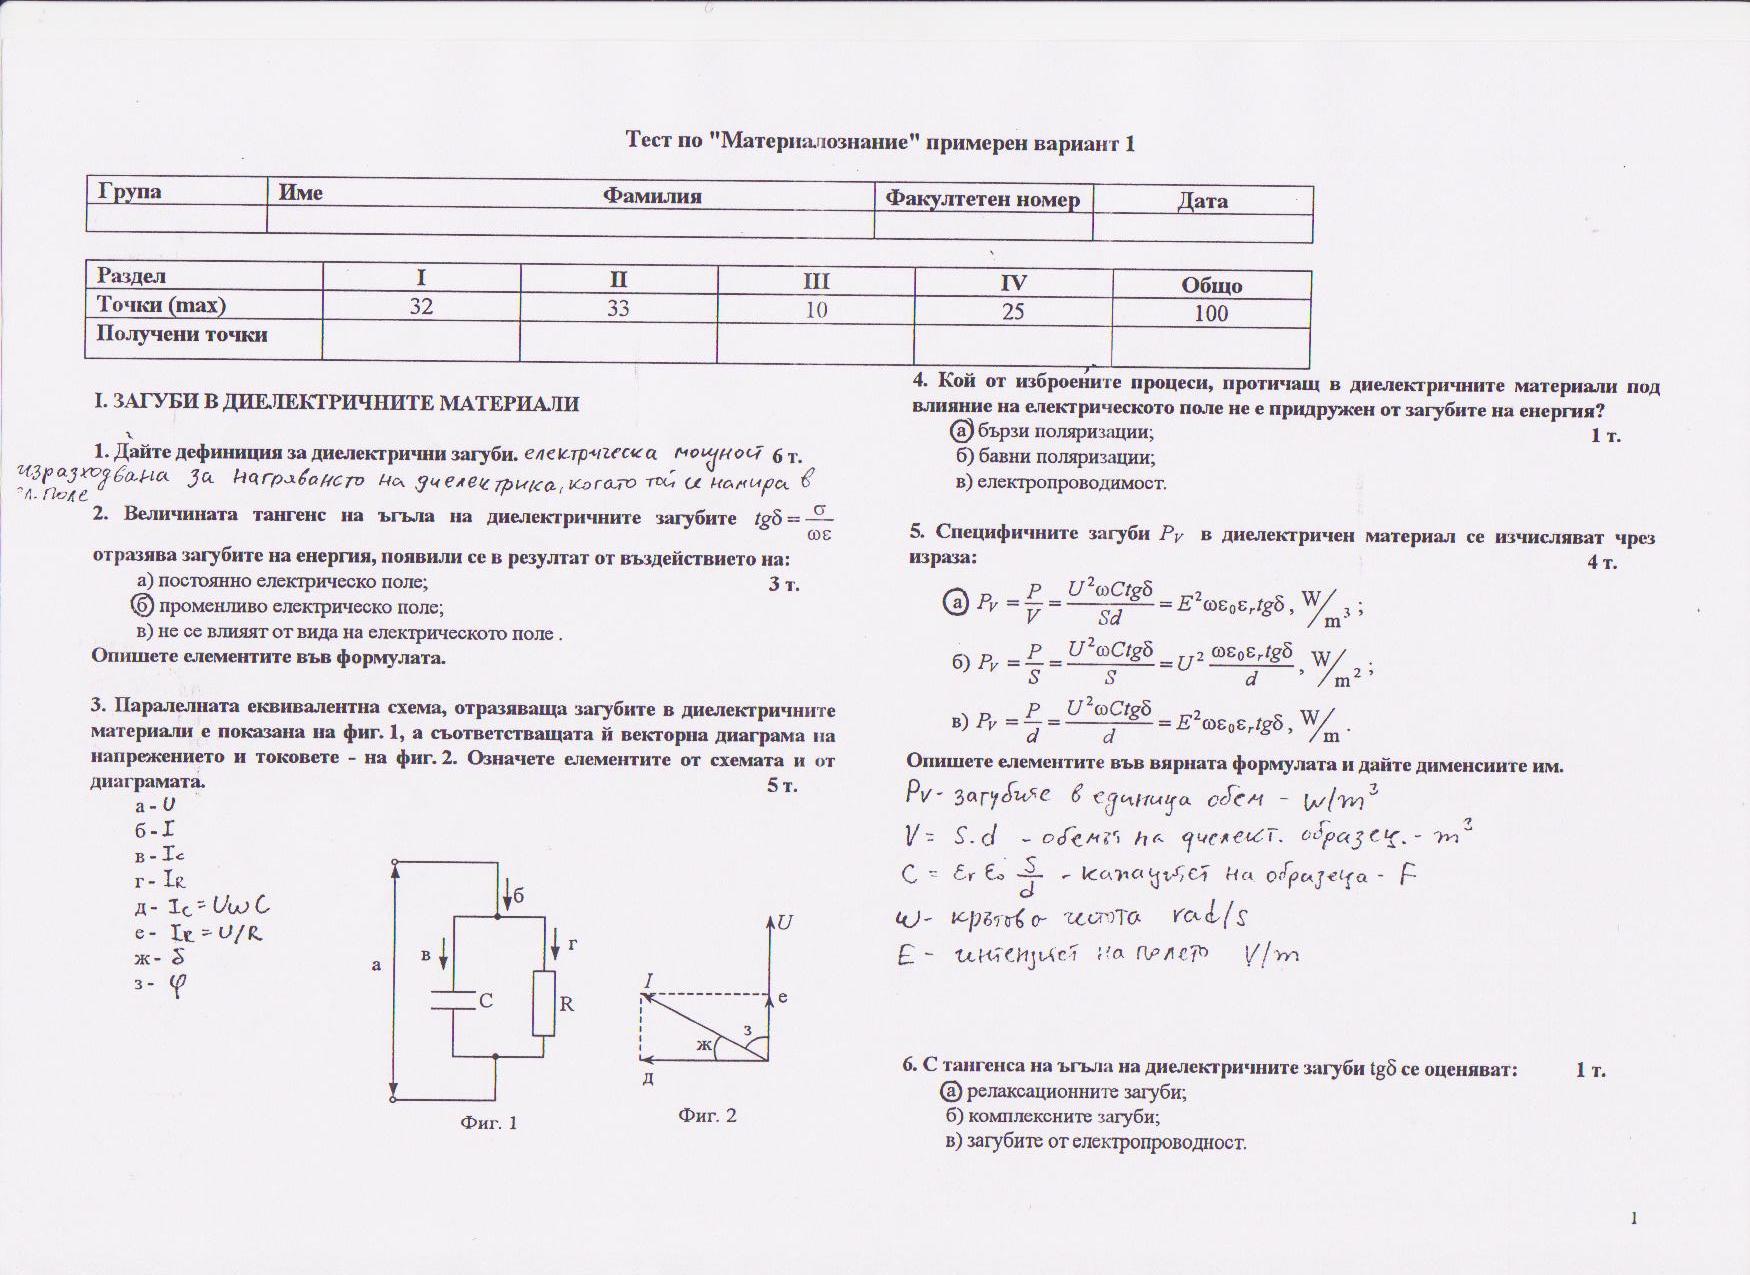 Тест по "Материалознание" примерен вариант 1
Група Име Фамилия Факултетен номер Дата
Раздел I II III IV Общо
Точки (max) 32 33 10 25 100
Получени точки
I. ЗАГУБИ В ДИЕЛЕКТРИЧНИТЕ МАТЕРИАЛИ
1. Дайте дефиниция за диелектрични загуби. електрическа мощност 6 т.
изразходвана за нагряването на диелектрика, когато той се намира в
ел. поле
2. Величината тангенс на ъгъла на диелектричните загубите tgδ = σ/ωε
отразява загубите на енергия, появили се в резултат от въздействието на:
а) постоянно електрическо поле; 3 т.
б) променливо електрическо поле;
в) не се влияят от вида на електрическото поле .
Опишете елементите във формулата.
3. Паралелната еквивалентна схема, отразяваща загубите в диелектричните
материали е показана на фиг. 1, а съответстващата й векторна диаграма на
напрежението и токовете - на фиг. 2. Означете елементите от схемата и от
диаграмата. 5 т.
а - U
б - I
в - Ic
г - IR
д - Ic = UωC
е - IR = U/R
ж - δ
з - φ
а б в г C R
Фиг. 1
U I е з ж д
Фиг. 2
4. Кой от изброените процеси, протичащ в диелектричните материали под
влияние на електрическото поле не е придружен от загубите на енергия?
а) бързи поляризации; 1 т.
б) бавни поляризации;
в) електропроводимост.
5. Специфичните загуби PV в диелектричен материал се изчисляват чрез
израза: 4 т.
а) PV = P/V = U²ωCtgδ/Sd = E²ωε₀εrtgδ, W/m³;
б) PV = P/S = U²ωCtgδ/S = U² ωε₀εrtgδ/d, W/m²;
в) PV = P/d = U²ωCtgδ/d = E²ωε₀εrtgδ, W/m.
Опишете елементите във вярната формулата и дайте дименсиите им.
PV - загубите в единица обем - W/m³
V = S.d - обемът на диелект. образец. - m³
C = εr ε₀ S/d - капацитет на образеца - F
ω - кръгова честота rad/s
E - интензитет на полето V/m
6. С тангенса на ъгъла на диелектричните загуби tgδ се оценяват: 1 т.
а) релаксационните загуби;
б) комплексните загуби;
в) загубите от електропроводност.
1